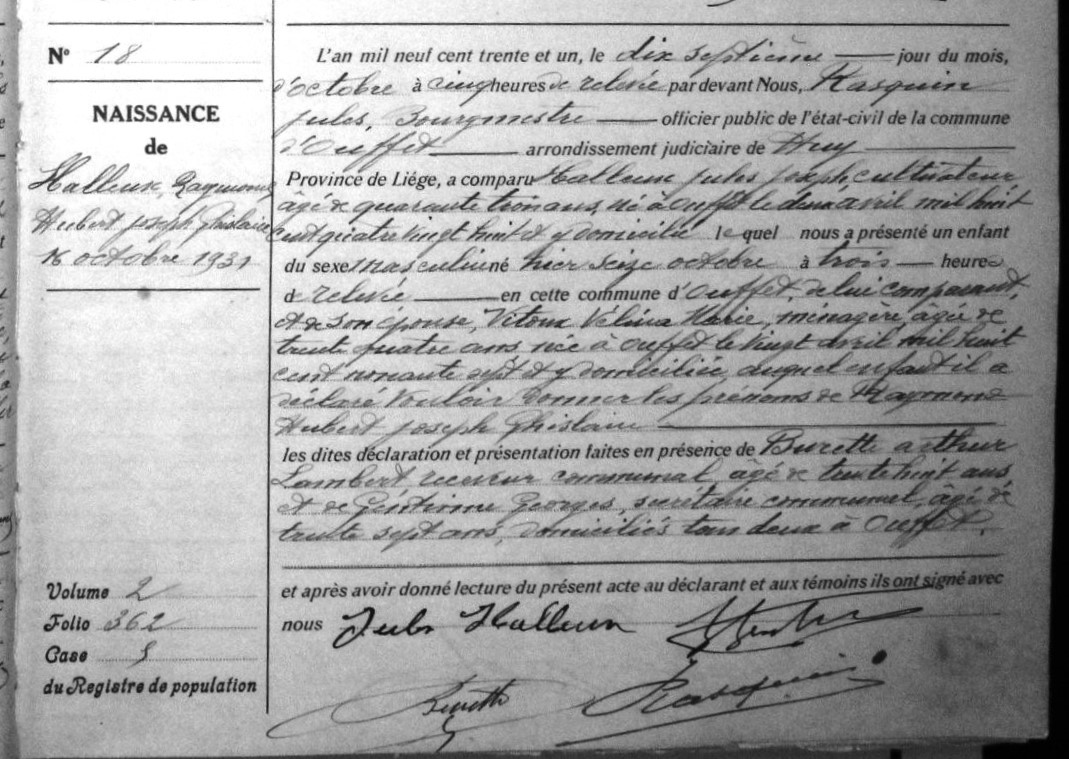 N° 18
NAISSANCE
de
Halleux, Raymond
Hubert Joseph Ghislain
16 octobre 1931
Volume 2
Folio 362
Case 5
du Registre de population
L'an mil neuf cent trente et un, le dix septième jour du mois,
d'octobre à cinq heures de relevée par devant Nous, Rasquin
Jules, Bourgmestre officier public de l'état-civil de la commune
d'Ouffet arrondissement judiciaire de Huy
Province de Liége, a comparu Halleux Jules Joseph, cultivateur
âgé de quarante trois ans, né à Ouffet le deux avril mil huit
cent quatre vingt huit et y domicilié lequel nous a présenté un enfant
du sexe masculin né hier seize octobre à trois heures
de relevée en cette commune d'Ouffet, de lui comparant,
et de son épouse, Vitoux Vélina Marie, ménagère, âgée de
trente quatre ans née à Ouffet le vingt avril mil huit
cent nonante sept et y domiciliée duquel enfant il a
déclaré vouloir donner les prénoms de Raymond
Hubert Joseph Ghislain
les dites déclaration et présentation faites en présence de Burette Arthur
Lambert receveur communal, âgé de trente huit ans
et de Georges, secrétaire communal, âgé de
trente sept ans, domiciliés tous deux à Ouffet.
et après avoir donné lecture du présent acte au déclarant et aux témoins ils ont signé avec
nous Jules Halleux
Burette Rasquin